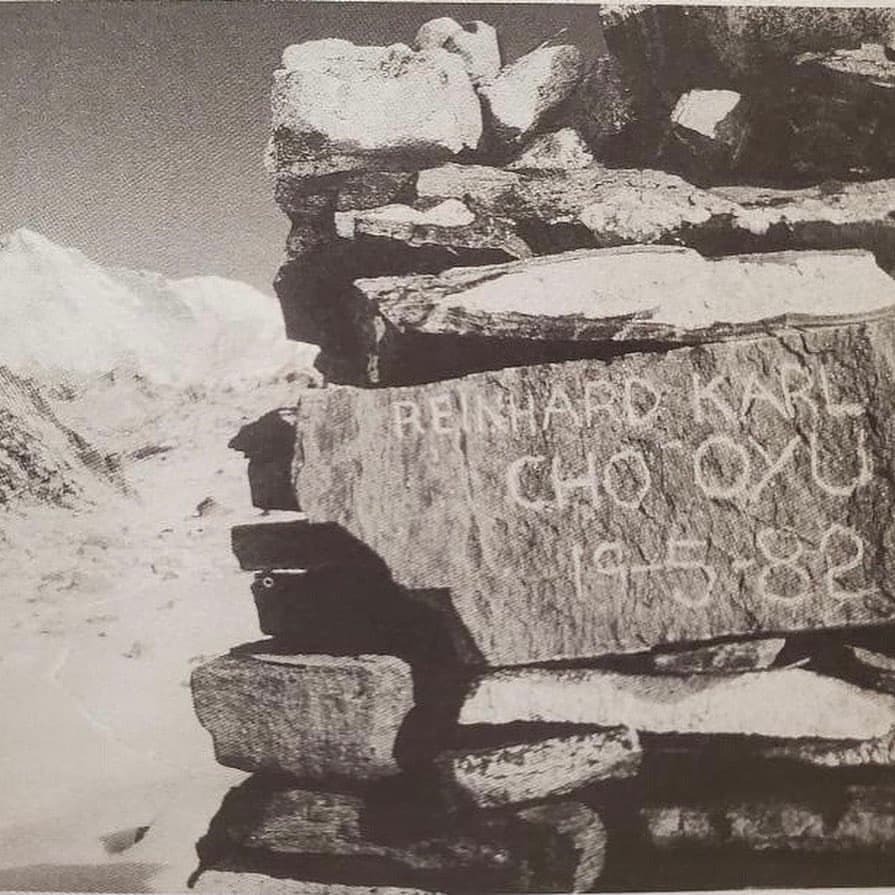 REINHARD KARL
CHO-OYU
19-5-82